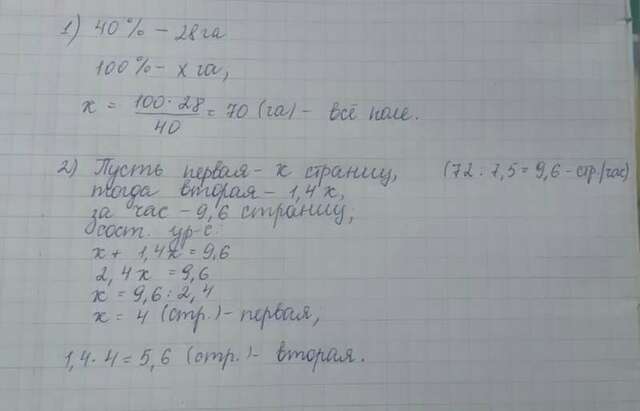 1) 40% – 28га
100% – x га,
x = 100·28/40 = 70 (га) – всё поле.
2) Пусть первая – x страниц, (72 : 7,5 = 9,6 – стр./час)
тогда вторая – 1,4x,
за час – 9,6 страниц;
сост. ур-е:
x + 1,4x = 9,6
2,4x = 9,6
x = 9,6 : 2,4
x = 4 (стр.) – первая,
1,4 · 4 = 5,6 (стр.) – вторая.